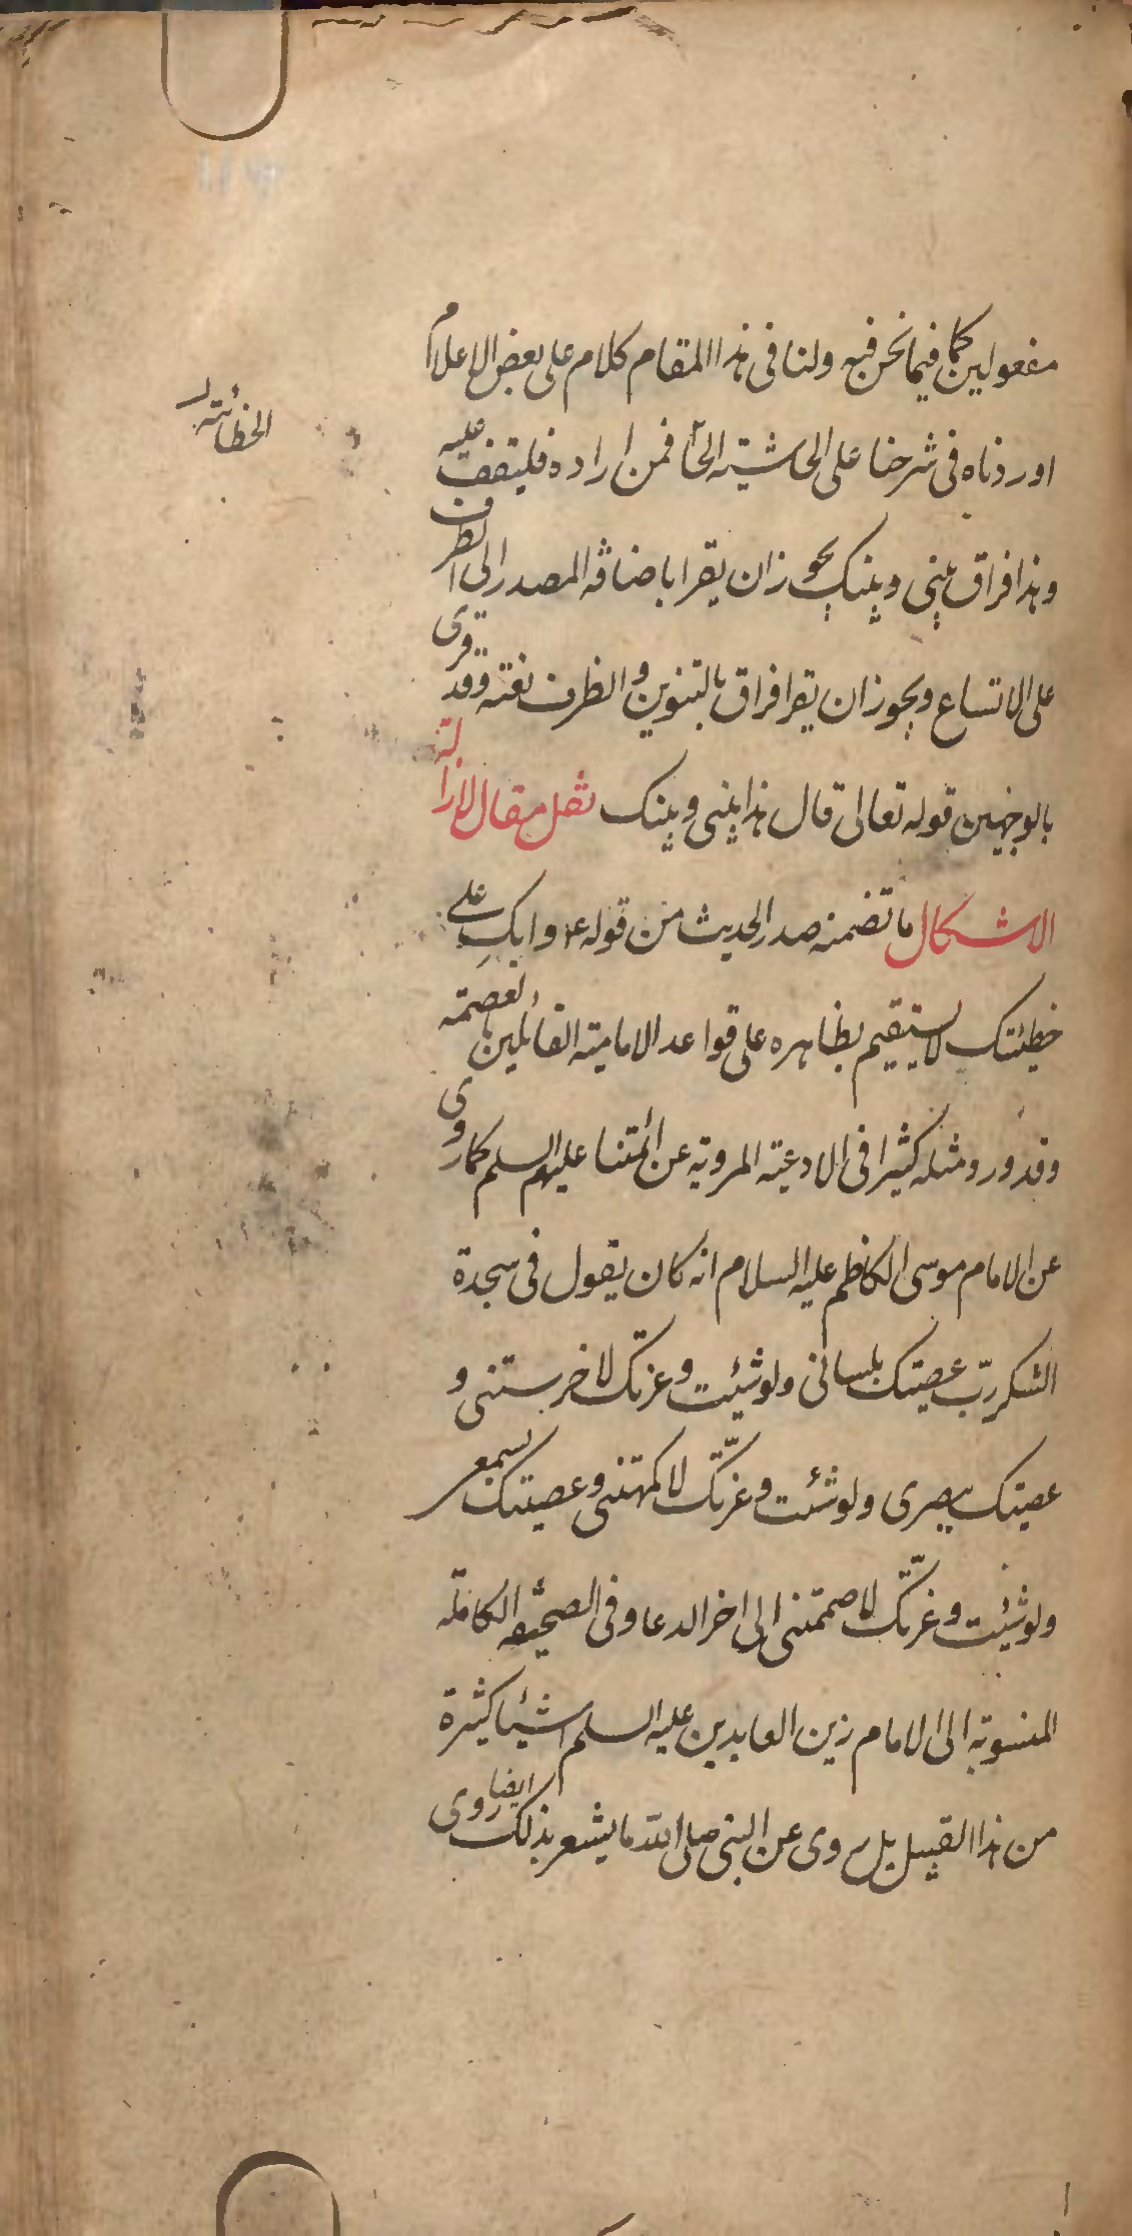 مفعولين كما فيما نحن فيه ولنا في هذا المقام كلام على بعض الاعلام
اوردناه في شرحنا على الحاشيته الخطائية فمن اراده فليقف عليه
وهذا فراق بيني وبينك يجوز ان يقرا باضافه المصدر الى الظرف
على الاتساع ويجوز ان يقرا فراق بالتنوين والظرف نعته وقد قرى
بالوجهين قوله تعالى قال هذا بيني وبينك نقل مقال لازالة
الاشكال ما تضمنه صدر الحديث من قوله ع وابك على
خطيئتك لا يستقيم بظاهره على قواعد الاماميته القائلين بالعصمته
وقد ورد مثله كثيرا في الادعيته المرويه عن ائمتنا عليهم السلم كما روى
عن الامام موسى الكاظم عليه السلام انه كان يقول في سجدة
الشكر ربّ عصيتك بلساني ولو شئيت وعزتك لاخرستني و
عصيتك ببصرى ولو شئت وعزتّك لاكمهتني وعصيتك بسمعى
ولو شئيت وعزتّك لاصممتني الى اخر الدعا وفي الصحيفه الكاملة
المنسوبة الى الامام زين العابدين عليه السلم اشيئا كثيرة
من هذا القبيل بل روى عن النبي صلى الله ما يشعر بذلك ايضا روى